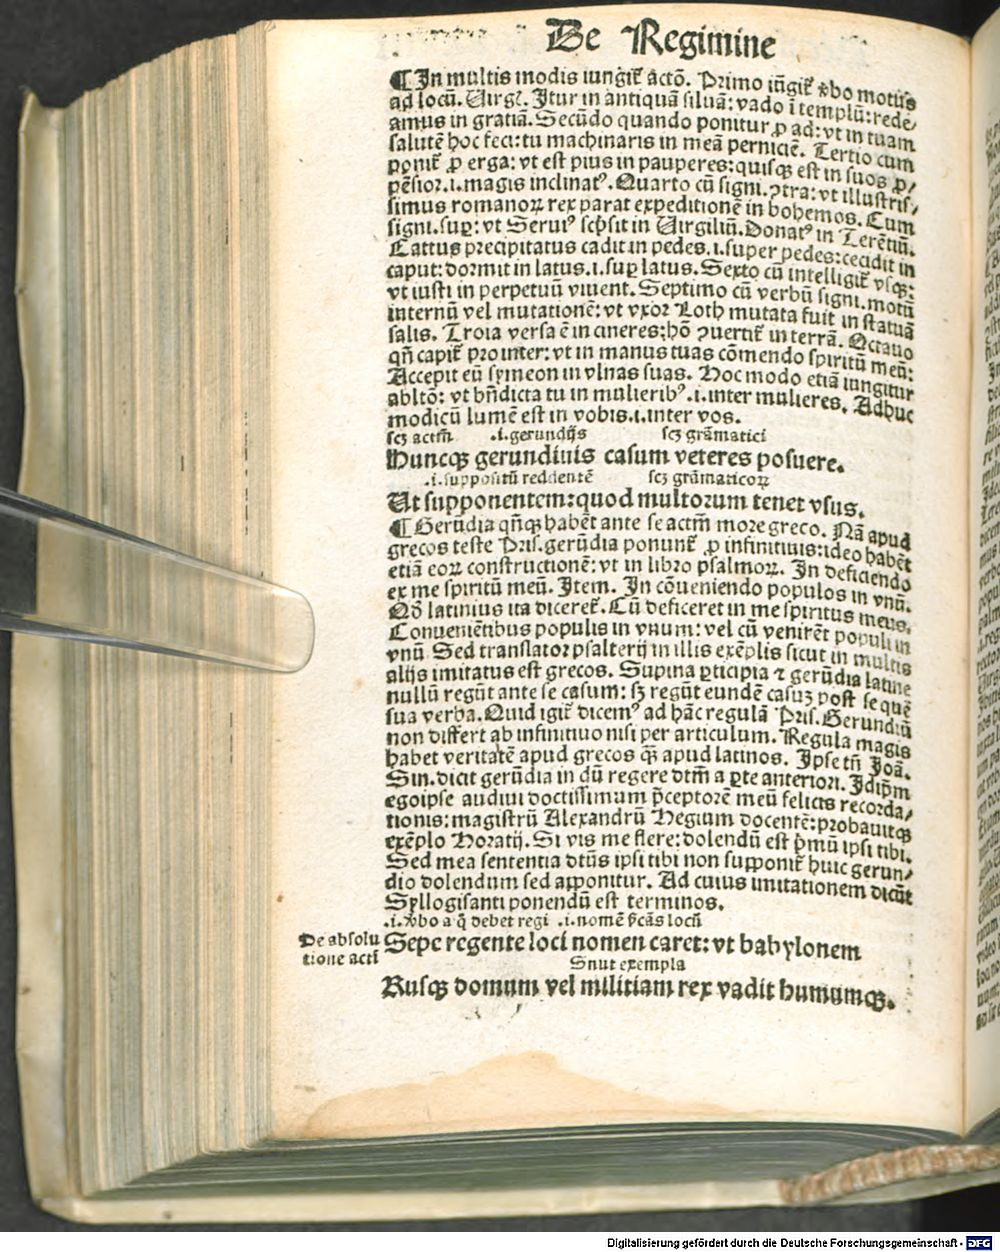 De Regimine
¶ In multis modis iungit᷑ actō. Primo iūgit᷑ v̾bo motus
ad locū. Virgͥ. Itur in antiquā siluā: vado ī templū: rede/
amus in gratiā. Secūdo quando ponitur ꝓ ad: vt in tuam
salutē hoc feci: tu machinaris in meā perniciē. Tertio cum
ponit᷑ ꝓ erga: vt est pius in pauperes: quisqꝫ est in suos ꝓ/
pēsior .i. magis inclinatꝰ. Quarto cū signi. ↄtra: vt illustris/
simus romanoꝝ rex parat expeditionē in bohemos. Cum
signi. suꝑ: vt Seruiꝰ scp̄sit in Virgiliū. Donatꝰ in Terētiū.
Cattus precipitatus cadit in pedes .i. super pedes: cecidit in
caput: dormit in latus .i. suꝑ latus. Sexto cū intelligit᷑ vsqꝫ:
vt iusti in perpetuū viuent. Septimo cū verbū signi. motū
internū vel mutationē: vt vxor Loth mutata fuit in statuā
salis. Troia versa ē in cineres: hō ↄuertit᷑ in terrā. Octauo
qn̄ capit᷑ pro inter: vt in manus tuas cōmendo spiritū meū:
Accepit eū symeon in vlnas suas. Hoc modo etiā iungitur
abltō: vt bn̄dicta tu in mulieribꝰ .i. inter mulieres. Adhuc
modicū lumē est in vobis .i. inter vos.
scꝫ actm̄ .i. gerundijs scꝫ grāmatici
Huncqꝫ gerundiuis casum veteres posuere.
.i. suppositū reddentē scꝫ grāmaticoꝝ
Ut supponentem: quod multorum tenet vsus.
¶ Gerūdia qn̄qꝫ habēt ante se actm̄ more greco. Nā apud
grecos teste Pris. gerūdia ponunt᷑ ꝓ infinitiuis: ideo habēt
etiā eoꝝ constructionē: vt in libro psalmoꝝ. In deficiendo
ex me spiritū meū. Item. In cōueniendo populos in vnū.
Qd̄ latinius ita diceret᷑. Cū deficeret in me spiritus meus.
Conueniētibus populis in vnum: vel cū venirēt populi in
vnū Sed translator psalterij in illis exēplis sicut in multis
alijs imitatus est grecos. Supina ꝑticipia ⁊ gerūdia latine
nullū regūt ante se casum: sꝫ regūt eundē casuꝫ post se quē
sua verba. Quid igit᷑ dicemꝰ ad hāc regulā Pris. Gerundiū
non differt ab infinitiuo nisi per articulum. Regula magis
habet veritatē apud grecos qꝫ̄ apud latinos. Ipse tn̄ Ioā.
Sin. dicit gerūdia in dū regere dtm̄ a ꝑte anteriori. Idip̄m
egoipse audiui doctissimum p̄ceptorē meū felicis recorda/
tionis: magistrū Alexandrū Hegium docentē: probauitqꝫ
exēplo Horatij. Si vis me flere: dolendū est p̄mū ipsi tibi.
Sed mea sententia dtūs ipsi tibi non supponit᷑ huic gerun/
dio dolendum sed apponitur. Ad cuius imitationem dicūt
Syllogisanti ponendū est terminos.
.i. v̾bo a q̄ debet regi .i. nomē
De absolu
tione acti
Sepe regente loci nomen caret: vt babylonem
Snut exempla
Rusqꝫ domum vel militiam rex vadit humumqꝫ.
Digitalisierung gefördert durch die Deutsche Forschungsgemeinschaft - DFG